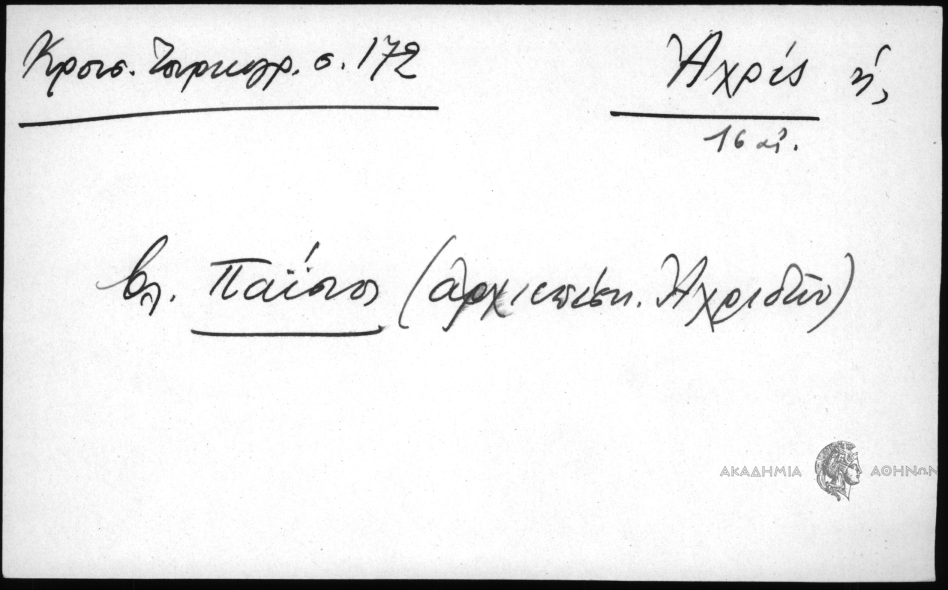 Κρουσ. Τουρκογρ. σ. 172
Ἀχρίς ἡ,
16 αἰ.
βλ. Παΐσιος (ἀρχιεπίσκ. Ἀχριδῶν)
ΑΚΑΔΗΜΙΑ ΑΘΗΝΩΝ